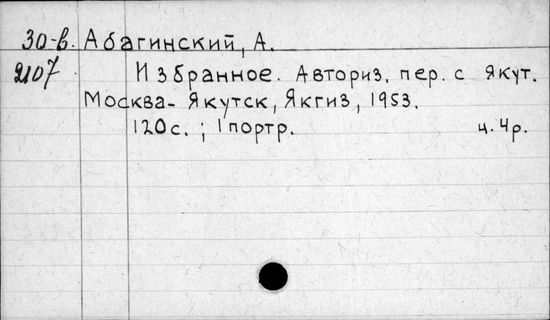 30-в. Абагинский, А.
2107 Избранное. Авториз. пер. с якут.
Москва-Якутск, Якгиз, 1953.
120с. ; 1 портр. ц. 4р.